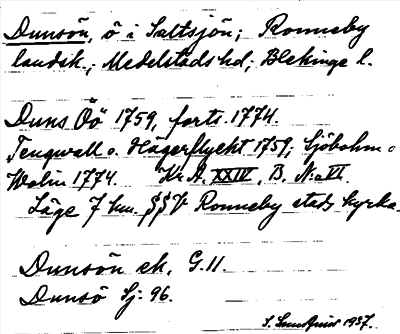 Dunsön, ö i Saltsjön; Ronneby
landsk.; Medelstads hd; Blekinge l.
Duns Öö 1759, forts. 1774.
Tengwall o. Hägerflycht 1759; Sjöbohm o.
Wolin 1774. Kr. A. XXIV, B. N:o VI.
Läge 7 km. §§V Ronneby stads kyrka.
Dunsön ek. G. 11.
Dunsö Sj. 96.
S. 1937.